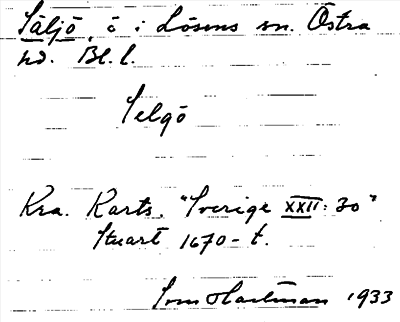 Säljö, ö i Lösens sn. Östra
hd. Bl. l.
Selgö
Kra. Karts. "Sverige XXII: 30"
Stuart 1670-t.
Ivar Hartman 1933